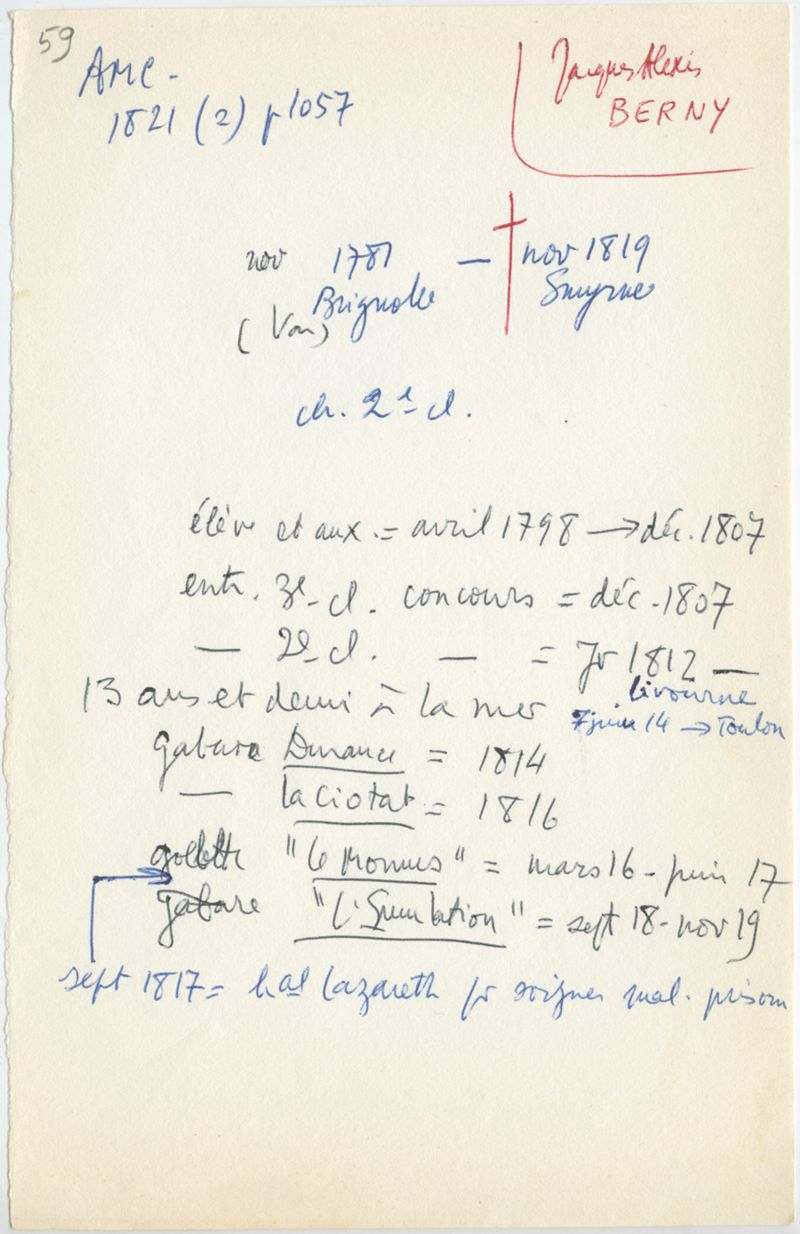 59
AMC -
1821 (2) p 1057
Jacques Alexis
BERNY
nov 1781 — nov 1819
Brignolle Smyrne
(Var)
ch. 2e cl.
élève et aux. = avril 1798 → déc. 1807
entr. 3e cl. concours = déc. 1807
— 2e cl. — = Jr 1812 —
Livourne
13 ans et demi à la mer 7 juin 14 → Toulon
gabare Durance = 1814
— la Ciotat = 1816
goelette "Le Momus" = mars 16 - juin 17
gabare "L'Emulation" = sept 18 - nov 19
sept 1817 = hal Lazareth pr soigner mal. prisonn